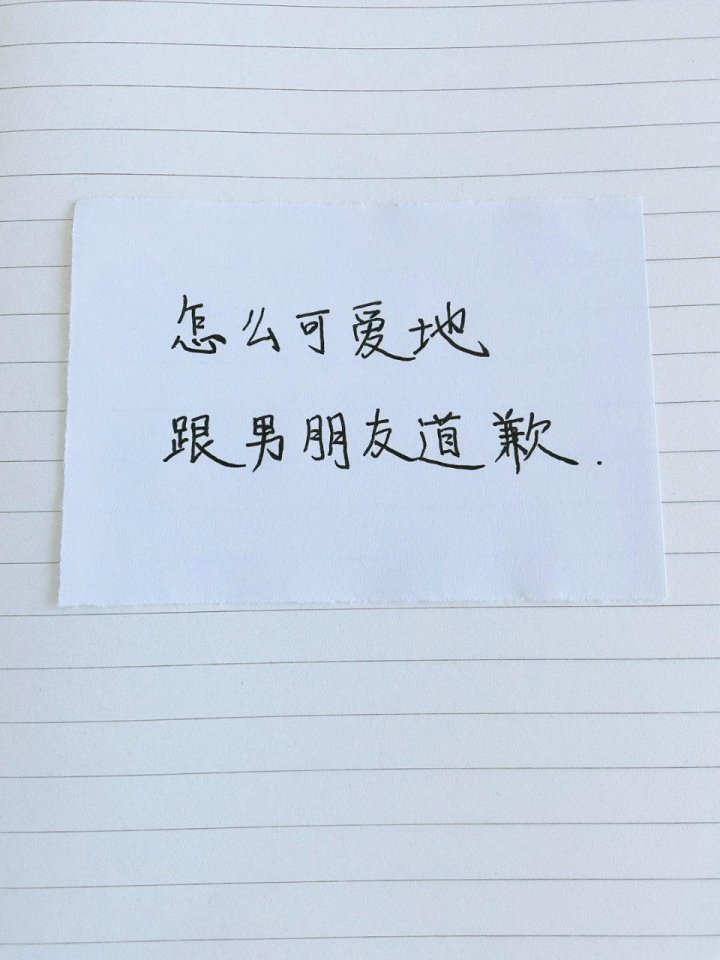 怎么可爱地
跟男朋友道歉.